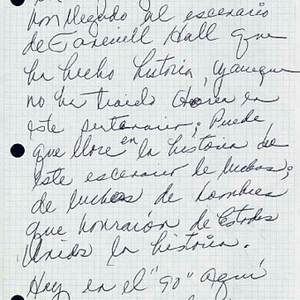 han llegado al escenario
de Farewill Hall que
ha hecho historia, y aunque
no ha traido
este ; Puede
que llore en la historia de
este escenario de luchas;
de luchas de hombres
que honraron de Estados
Unidos la historia.
Hoy en el "90" aquí